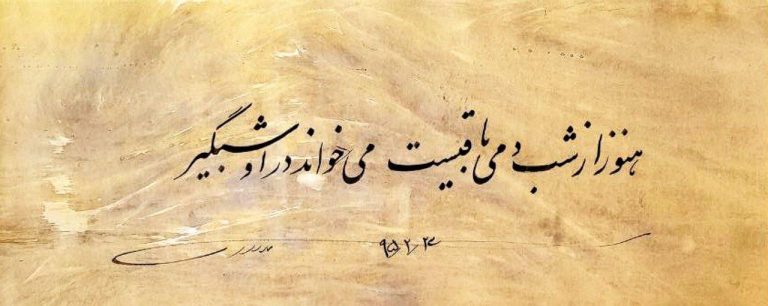 هنوز از شب دمی باقیست می خواند در او شبگیر